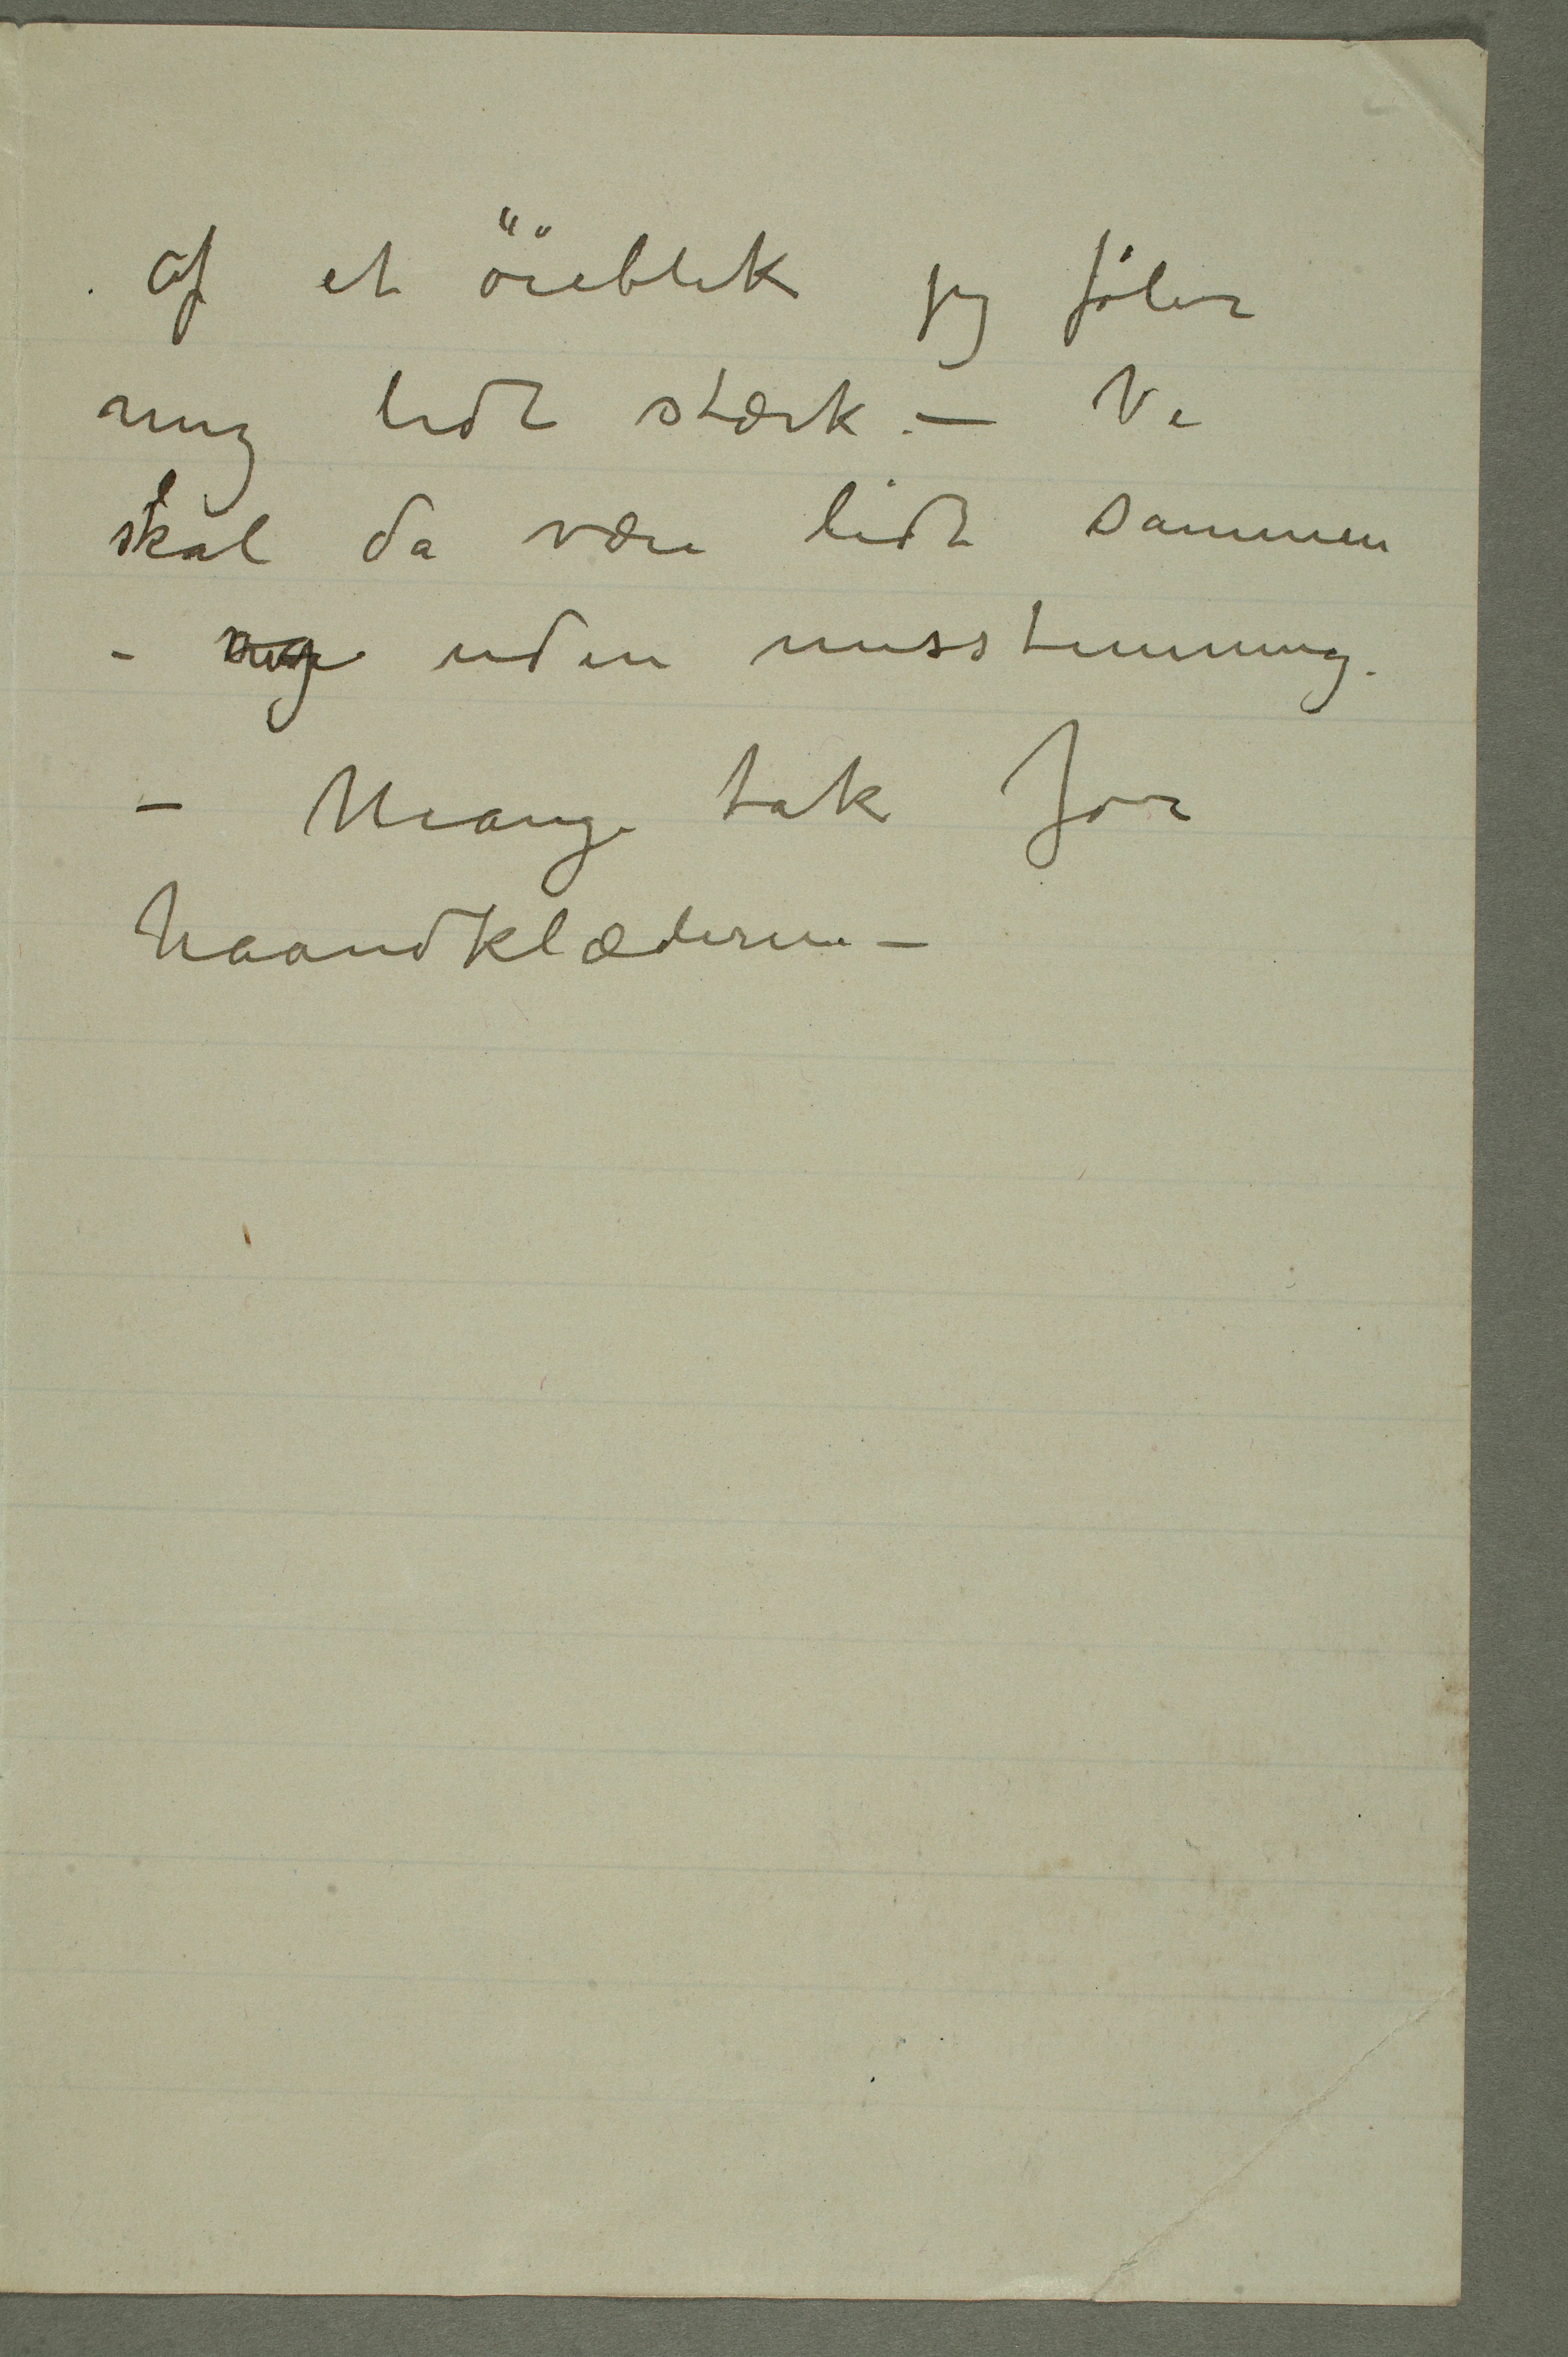 af et öieblik jeg föler
mig lidt stærk. – Vi
skal da være lidt sammen
– uden misstemning.
– Mange tak for
haandklæderne –